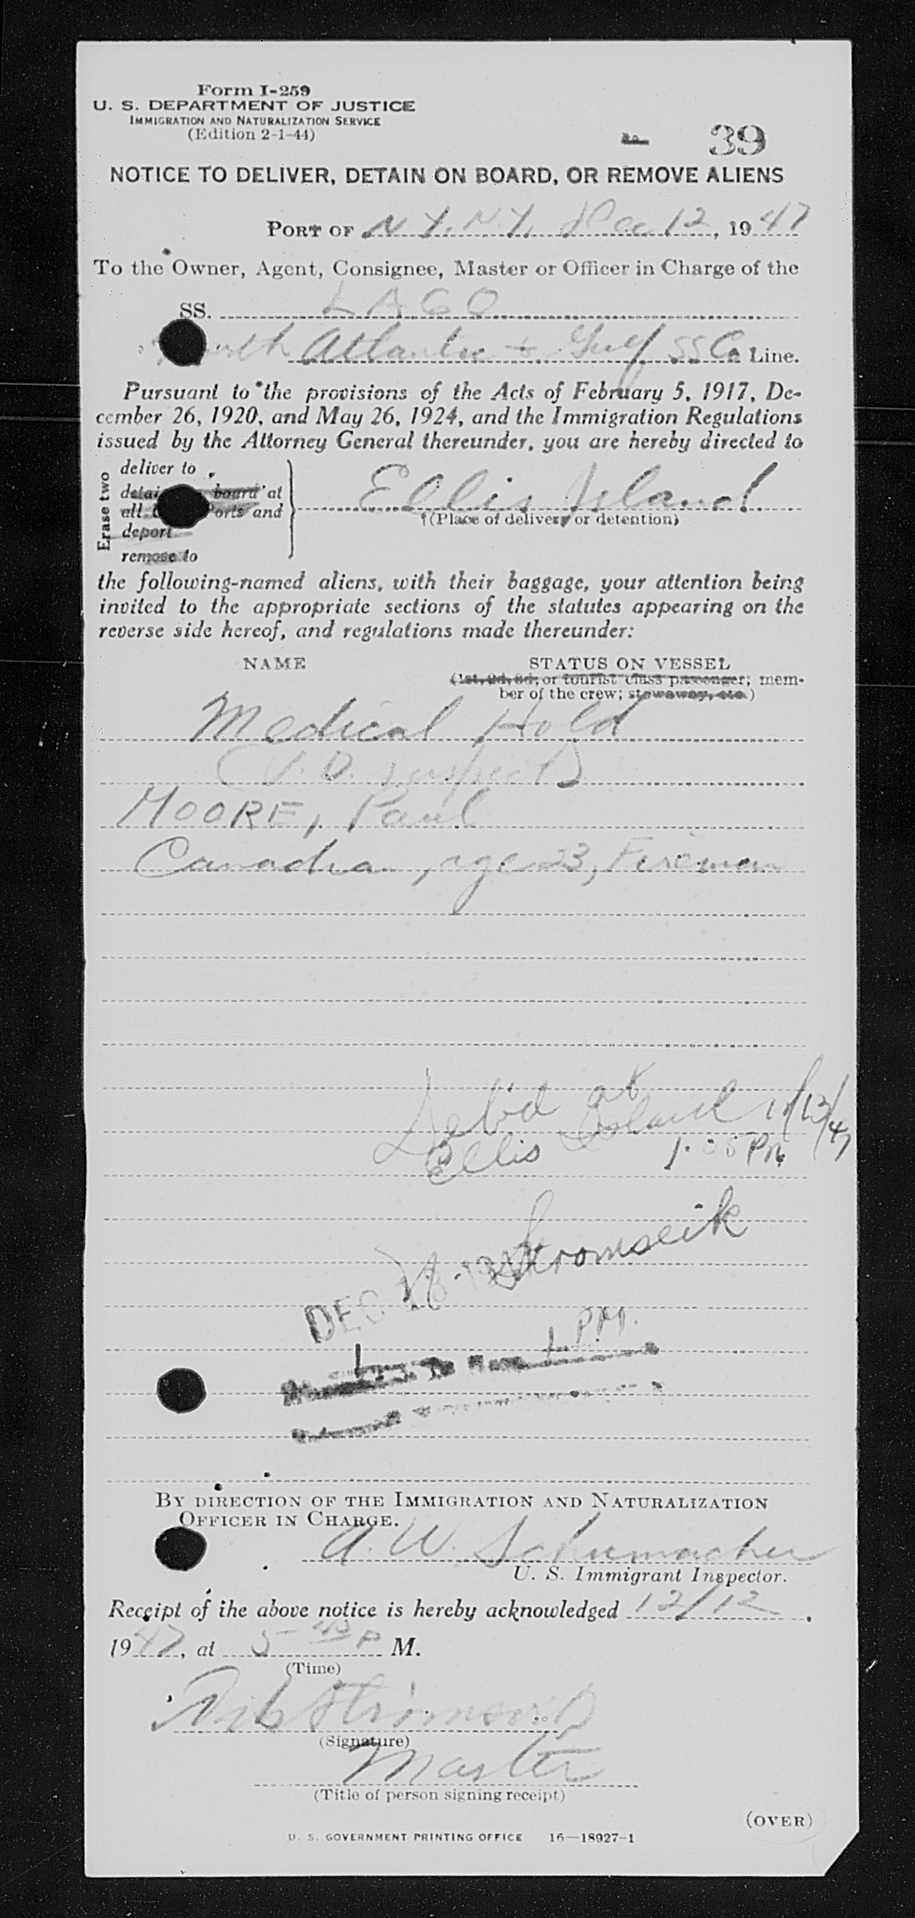 Form I-259
U. S. DEPARTMENT OF JUSTICE
IMMIGRATION AND NATURALIZATION SERVICE
(Edition 2-1-44)
No. 39
NOTICE TO DELIVER, DETAIN ON BOARD, OR REMOVE ALIENS
PORT OF N.Y. N.Y. Dec 12, 1947
To the Owner, Agent, Consignee, Master or Officer in Charge of the
SS. LAGO
North Atlantic + Gulf SS Co. Line.
Pursuant to the provisions of the Acts of February 5, 1917, De-
cember 26, 1920, and May 26, 1924, and the Immigration Regulations
issued by the Attorney General thereunder, you are hereby directed to
Erase two
deliver to
detain board at
all Ports and
deport
remove to
Ellis Island
(Place of delivery or detention)
the following-named aliens, with their baggage, your attention being
invited to the appropriate sections of the statutes appearing on the
reverse side hereof, and regulations made thereunder:
NAME STATUS ON VESSEL
(1st, 2d, 3d, or tourist class passenger; mem-
ber of the crew; stowaway, etc.)
Medical Hold
(V.D. suspect)
MOORE, Paul
Canadian, age 23, Fireman
Deb'd at
Ellis Island 12/13/47
PM
Stromseik
DEC
1 P.M.
BY DIRECTION OF THE IMMIGRATION AND NATURALIZATION
OFFICER IN CHARGE.
A. W. Schumacher
U. S. Immigrant Inspector.
Receipt of the above notice is hereby acknowledged 12/12,
1947, at 5 P M.
(Time)
(Signature)
Master
(Title of person signing receipt)
(OVER)
U. S. GOVERNMENT PRINTING OFFICE 16—18927-1